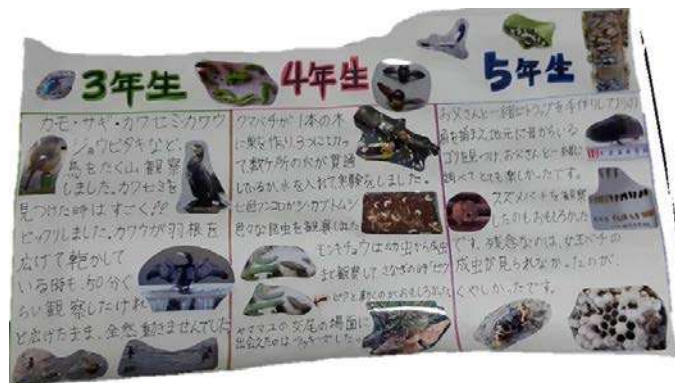 3年生
カモ・サギ・カワセミカワウ
ジョウビタキなど、
鳥をたくさん観察
しました。カワセミを
見つけた時はすごく!!
ビックリしました。カワウが羽根を
広げて乾かして
いる時も、50分ぐ
らい観察したけれ
ど広げたまま、全然動きませんでした
4年生
クマバチが1本の木
に巣を作り3つに
て数ヶ所の穴が貫通
しているか、水を入れて実験をしました。
カブトムシ
色々な昆虫を観察しました
モンキチョウは幼虫から成虫
まで観察して、さなぎの時
動くのがおもしろかった
ヤママユの交尾の場面に
出会えたのはラッキーでした
5年生
お父さんと一緒にトラップを手作りして
を捕まえ、地元に昔からいる
を見つけ、お父さんと一緒に
調べとても楽しかったです。
スズメバチを観察
したのもおもしろかった
です。残念なのは、女王バチの
成虫が見られなかったのが、
くやしかったです。